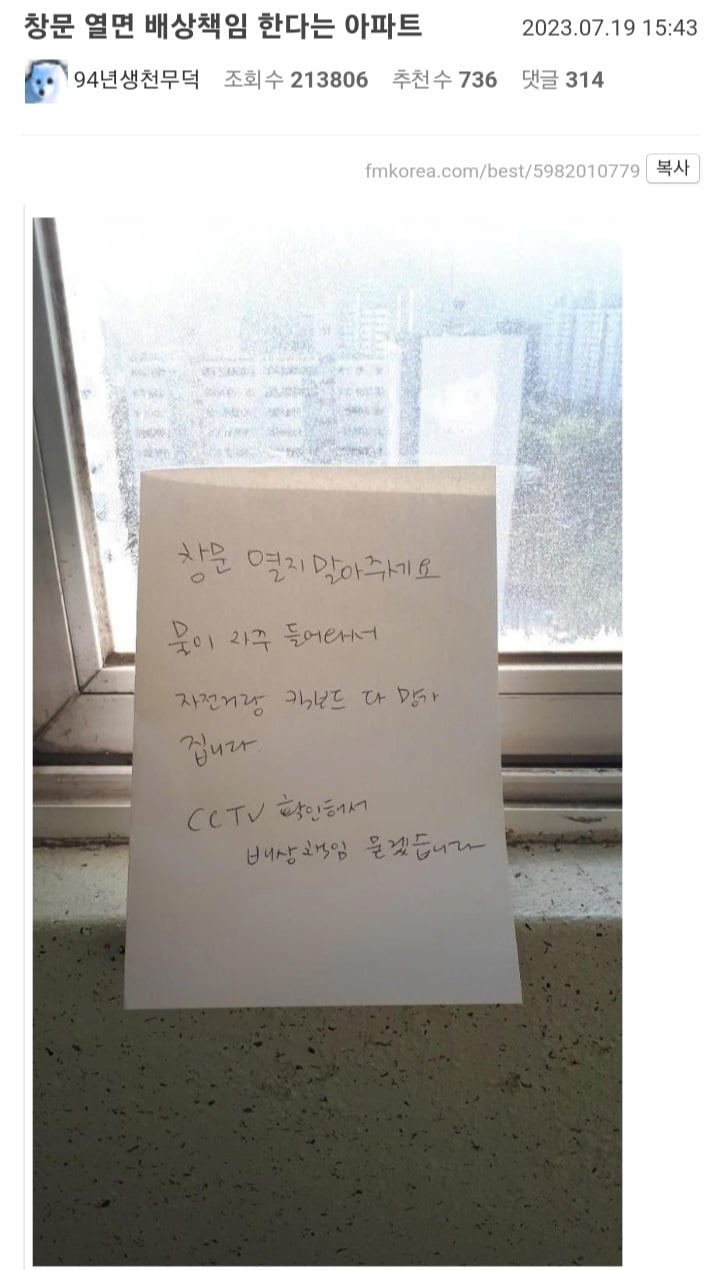 창문 열면 배상책임 한다는 아파트
2023.07.19 15:43
94년생천무덕 조회수 213806 추천수 736 댓글 314
fmkorea.com/best/5982010779 복사
창문 열지말아주세요
물이 자주 들어와서
자전거랑 킥보드 다 망가
집니다.
CCTV 확인해서
배상책임 묻겠습니다